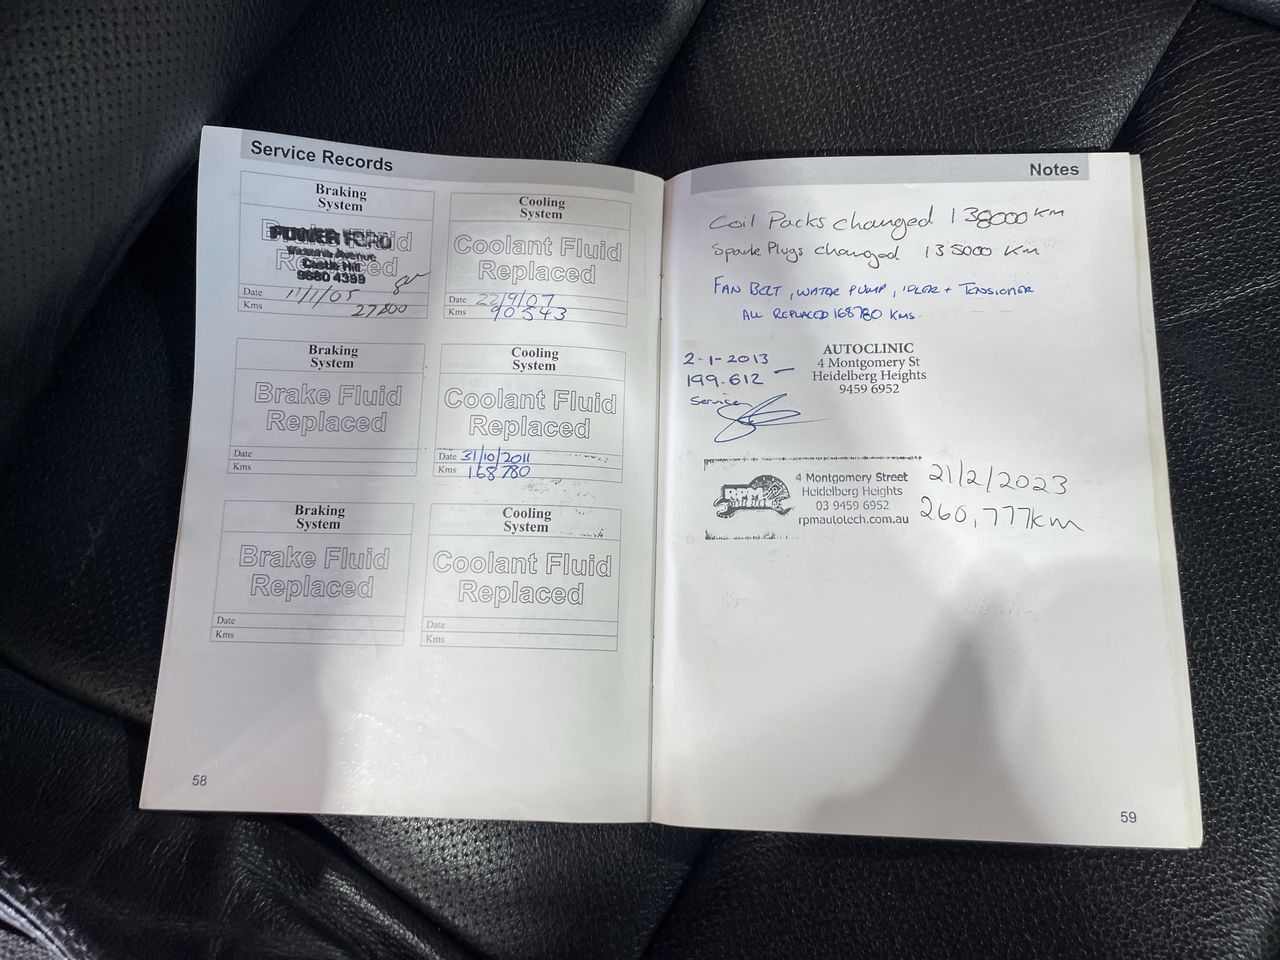 Service Records
Braking
System
POWER FORD
Victoria Avenue
Castle Hill
9680 4399
Date 11/1/05
Kms 27800
Cooling
System
Coolant Fluid
Replaced
Date 22/9/07
Kms 90543
Braking
System
Brake Fluid
Replaced
Date
Kms
Cooling
System
Coolant Fluid
Replaced
Date 31/10/2011
Kms 168780
Braking
System
Brake Fluid
Replaced
Date
Kms
Cooling
System
Coolant Fluid
Replaced
Date
Kms
58
Notes
Coil Packs changed 138000 KM
Spark Plugs changed 135000 KM
FAN BELT, WATER PUMP, IDLER + TENSIONER
ALL REPLACED 168780 KMS.
2-1-2013
199.612 -
Service
AUTOCLINIC
4 Montgomery St
Heidelberg Heights
9459 6952
RPM
4 Montgomery Street
Heidelberg Heights
03 9459 6952
rpmautotech.com.au
21/2/2023
260,777km
59